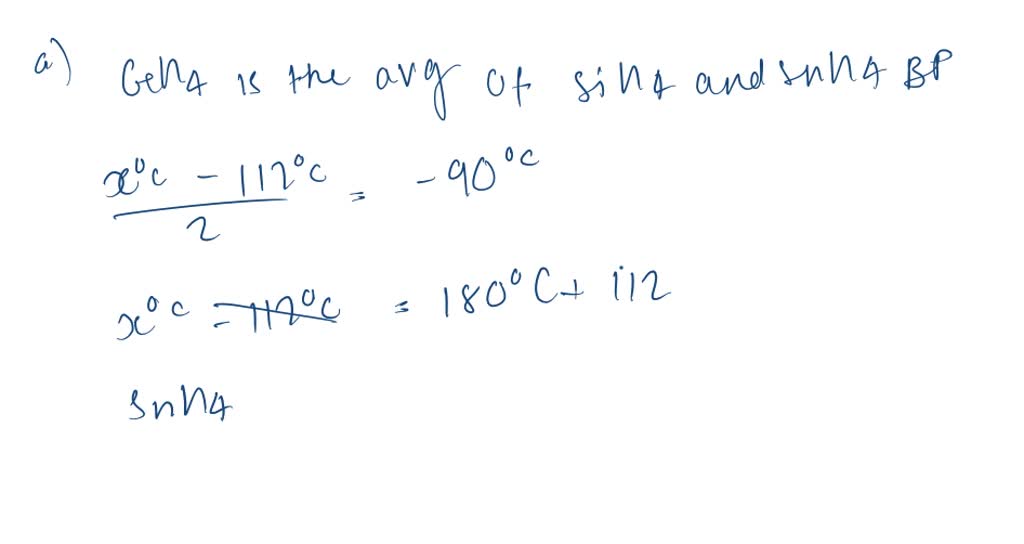 a) GeH4 is the avg of SiH4 and SnH4 BP
x°C - 112°C / 2 = -90°C
x°C - 112°C = 180°C + 112
SnH4